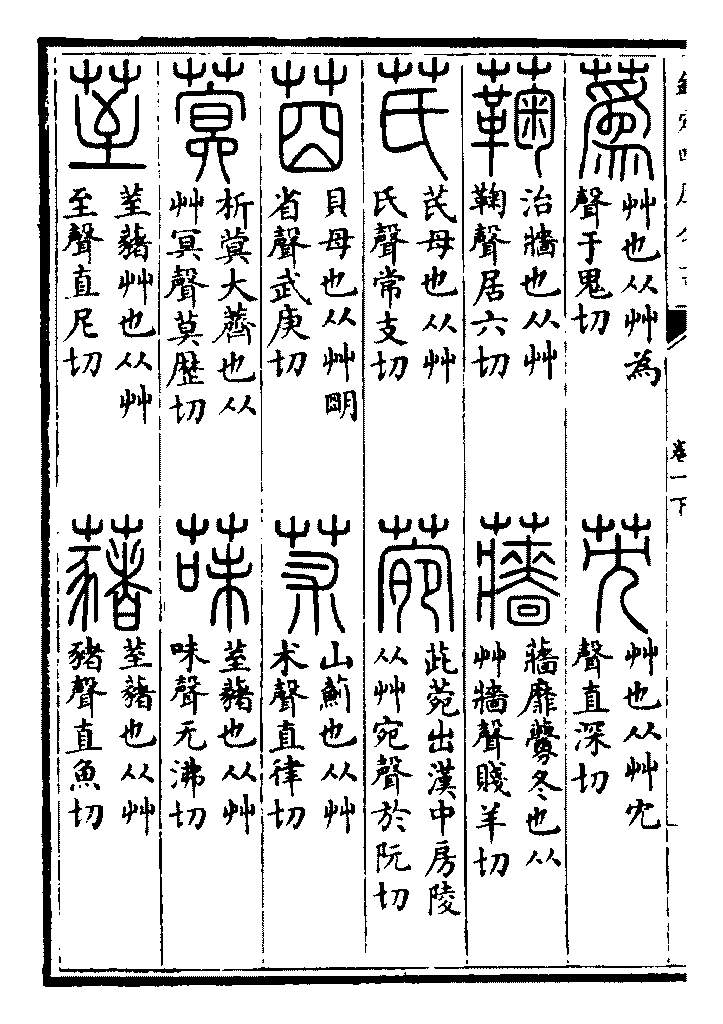 卷一下
蒍
艸也从艸為
聲于鬼切
艸也从艸冘
聲直深切
蘜
治牆也从艸
鞠聲居六切
蘠
蘠靡虋冬也从
艸牆聲賤羊切
芪
芪母也从艸
氏聲常支切
菀
茈菀出漢中房陵
从艸宛聲於阮切
莔
貝母也从艸朙
省聲武庚切
荗
山薊也从艸
术聲直律切
蓂
析蓂大薺也从
艸冥聲莫歴切
菋
荎藸也从艸
味聲无沸切
荎
荎藸艸也从艸
至聲直尼切
藸
荎藸也从艸
豬聲直魚切